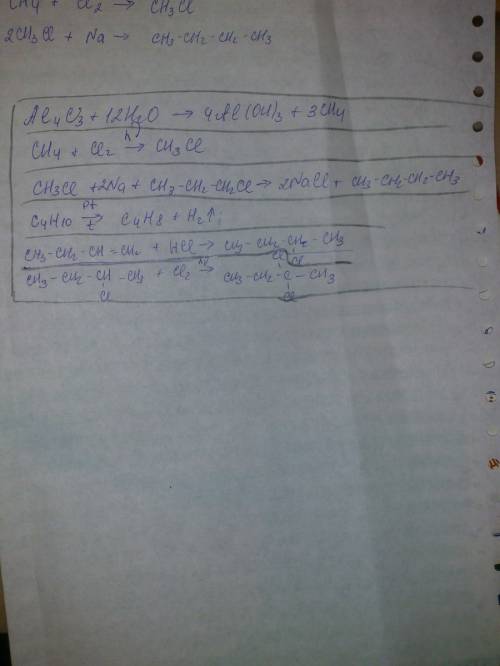 CH4 + Cl2 → CH3Cl
2CH3Cl + Na → CH3-CH2-CH2-CH3
Al4C3 + 12H2O → 4Al(OH)3 + 3CH4
hν
CH4 + Cl2 → CH3Cl
CH3Cl + 2Na + CH3-CH2-CH2Cl → 2NaCl + CH3-CH2-CH2-CH3
Pt
C4H10 → C4H8 + H2↑;
t
CH3-CH2-CH=CH2 + HCl → CH3-CH2-CH-CH3
Cl
hν Cl
CH3-CH2-CH-CH3 + Cl2 → CH3-CH2-C-CH3
Cl Cl